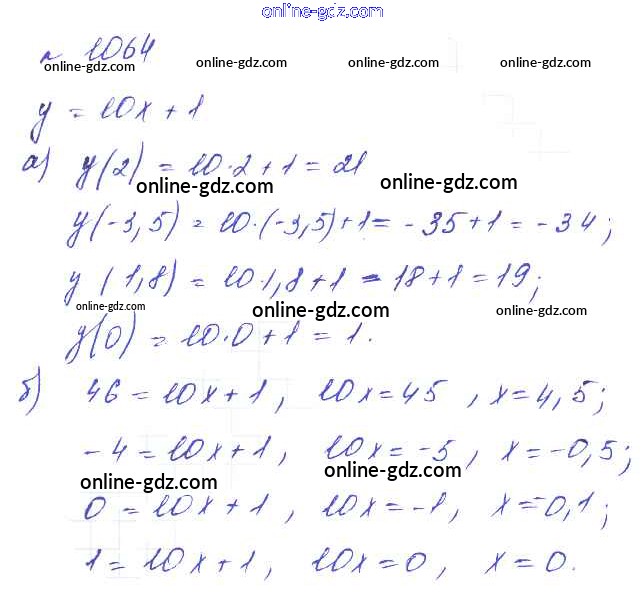 online-gdz.com
№ 1064
online-gdz.com online-gdz.com online-gdz.com online-gdz.com
y = 10x + 1
а) y(2) = 10·2 + 1 = 21
online-gdz.com online-gdz.com
y(-3,5) = 10·(-3,5)+1 = -35+1 = -34;
y(1,8) = 10·1,8+1 = 18+1 = 19;
online-gdz.com online-gdz.com online-gdz.com
y(0) = 10·0+1 = 1.
б) 46 = 10x+1, 10x=45, x=4,5;
-4=10x+1, 10x=-5, x=-0,5;
online-gdz.com online-gdz.com
0 = 10x+1, 10x=-1, x=-0,1;
1 = 10x+1, 10x=0, x=0.